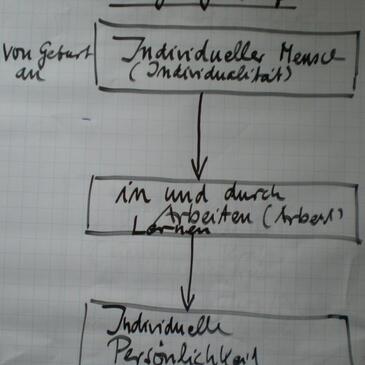 von Geburt
an
Individueller Mensch
(Individualität)
in und durch
Arbeiten (Arbeit)
Lernen
Individuelle
Persönlichkeit